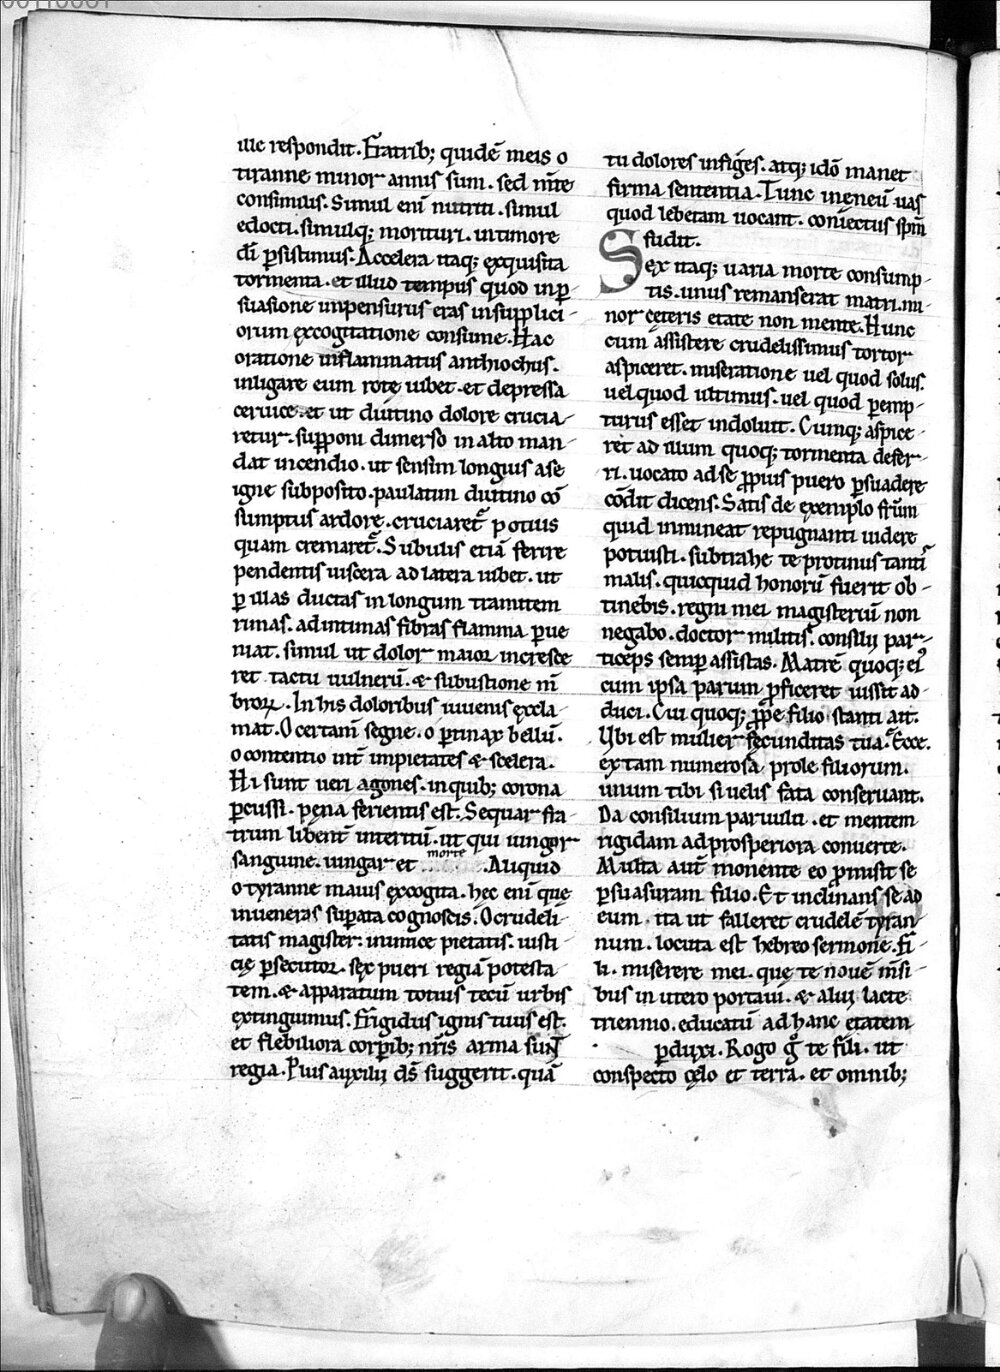 ille respondit. Fratrib; quidē meis o
tiranne minor annis sum. sed mte
consimilis. Simul eni nutriti. simul
edocti. simulq; morituri. in timore
di psistimus. Accelera itaq; exquisita
tormenta. et illud tempus quod inp
suasione inpensurus eras in supplici-
orum excogitatione consume. Hac
oratione inflammatus anthiochus.
inligare eum rotę iubet. et depressa
ceruice. et ut diutino dolore crucia-
retur. supponi dimerso in alto man-
dat incendio. ut sensim longius a se
igne subposito. paulatim diutino cō
sumptus ardore. cruciaret potius
quam cremaret. Subulis etiā ferire
pendentis uiscera ad latera iubet. ut
p illas ductas in longum tramitem
rimas. ad intimas fibras flamma pue
niat. simul ut dolor maior incresce
ret tactu uulnerū. & subustione mē
broꝝ. In his doloribus iuuenis excla-
mat. O certam segne. o ptinax bellū.
o contentio int impietates & scelera.
Hi sunt ueri agones. in quib; corona
pcussi. pena ferientis est. Sequar fra-
trum libent interitū. ut qui iungor
sanguine. iungar et morte. Aliquid
o tyranne maius excogita. hęc eni quę
inueneras supata cognoscis. O crudeli-
tatis magister: inimice pietatis. iusti-
cię psecutor. sex pueri regiā potesta-
tem. & apparatum totius tecū urbis
extinguimus. Frigidus ignis tuus est.
et flebiliora corpib; nris arma sunt
regia. Pius auxilii ds suggerit. quā
tu dolores infiges. atq; idō manet
firma sententia. Tunc in eneū uas
quod lebetam uocant. coniectus spm
fudit.
Sex itaq; uaria morte consump-
tis. unus remanserat matri. mi-
nor cęteris etate non mente. Hunc
cum assistere crudelissimus tortor
aspiceret. miseratione uel quod solus.
uel quod ultimus. uel quod pemp-
turus esset indoluit. Cumq; aspice-
ret ad illum quoq; tormenta defer-
ri. uocato ad se ppius puero psuadere
cōdit dicens. Satis de exemplo frūm
quid inmineat repugnanti uidere
potuisti. subtrahe te protinus tanti
malis. quicquid honorū fuerit ob-
tinebis. regni mei magisteriū non
negabo. doctor militis. consilii par-
ticeps semp assistas. Matrē quoq; ei
cum ipsa parum pficeret iussit ad-
duci. Cui quoq; ppe filio stanti ait.
Ubi est mulier fecunditas tua? Ecce.
ex tam numerosa prole filiorum.
unum tibi si uelis fata conseruant.
Da consilium paruulo. et mentem
rigidam ad prosperiora conuerte.
Multa aut monente eo promisit se
psuasuram filio. Et inclinans se ad
eum. ita ut falleret crudelē tyran-
num. locuta est hebreo sermone. Fi-
li. miserere mei. quę te nouē msi-
bus in utero portaui. & alui lacte
triennio. educatū ad hanc etatem
pduxi. Rogo g te fili. ut
conspecto cęlo et terra. et omnib;